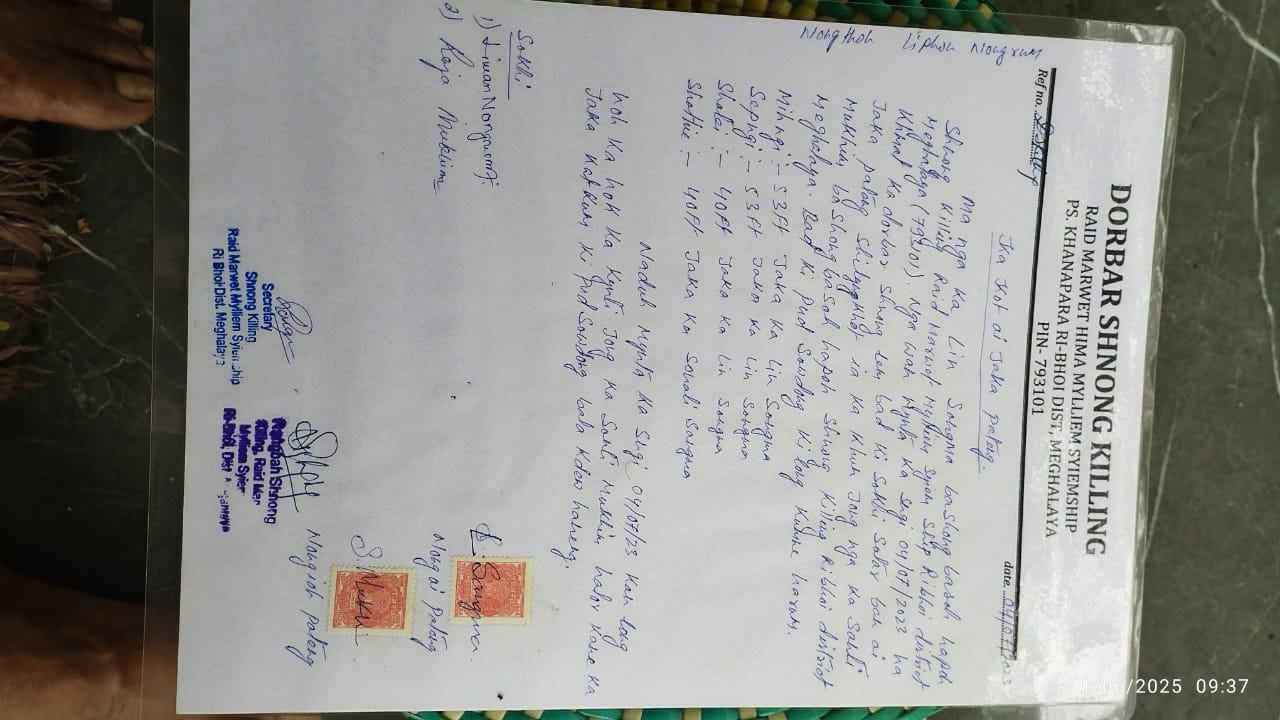 DORBAR SHNONG KILLING
RAID MARWET HIMA MYLLIEM SYIEMSHIP
PS. KHANAPARA RI-BHOI DIST, MEGHALAYA
PIN- 793101
Ref no.
date. 04/07/2023
Ka Kot ai Jaka pateng.
Ma nga ka Lin Songma bashong basah hapoh
Shnong Killing Raid Marwet Mylliem Syiem Ship Ribhoi district
Meghalaya (793101). Nga wah mynta ka sngi 04/07/2023 ha
Khmat ka dorbar Shnong lem bad ki Sakhi Salar ban ai
Jaka pateng ia ka Khun Jong nga ka Sandi
Mukhim ba Shong basah hapoh Shnong Killing Ribhoi district
Meghalaya. Bad ki pud Sawdong ki long kumne harum.
Mihngi :- 53Ft Jaka ka Lin Songma
Sepngi :- 53Ft Jaka ka Lin Songma
Shatei :- 40Ft Jaka ka Lin Songma
Shathie :- 40Ft Jaka ka Sonali Sangma
Naduh Mynta ka Sngi 04/07/23 Kan long
hok ka hok ka kynti Jong ka Sandi Mukhim halor kane ka
Jaka katkum ki pud Sawdong baba kdew haneng.
L. Songma.
Nongai Pateng
S. Mukhim.
Nongioh Pateng
Sakhi
1)
2) Raja Mukhim
Nongthoh Liphon Nongrum
Secretary
Shnong Killing
Raid Marwet Mylliem Syiemship
Ri Bhoi Dist. Meghalaya
Rangbah Shnong
Killing, Raid Mar
Mylliem Syiem
Ri-Bhoi, Dist
21/06/2025 09:37